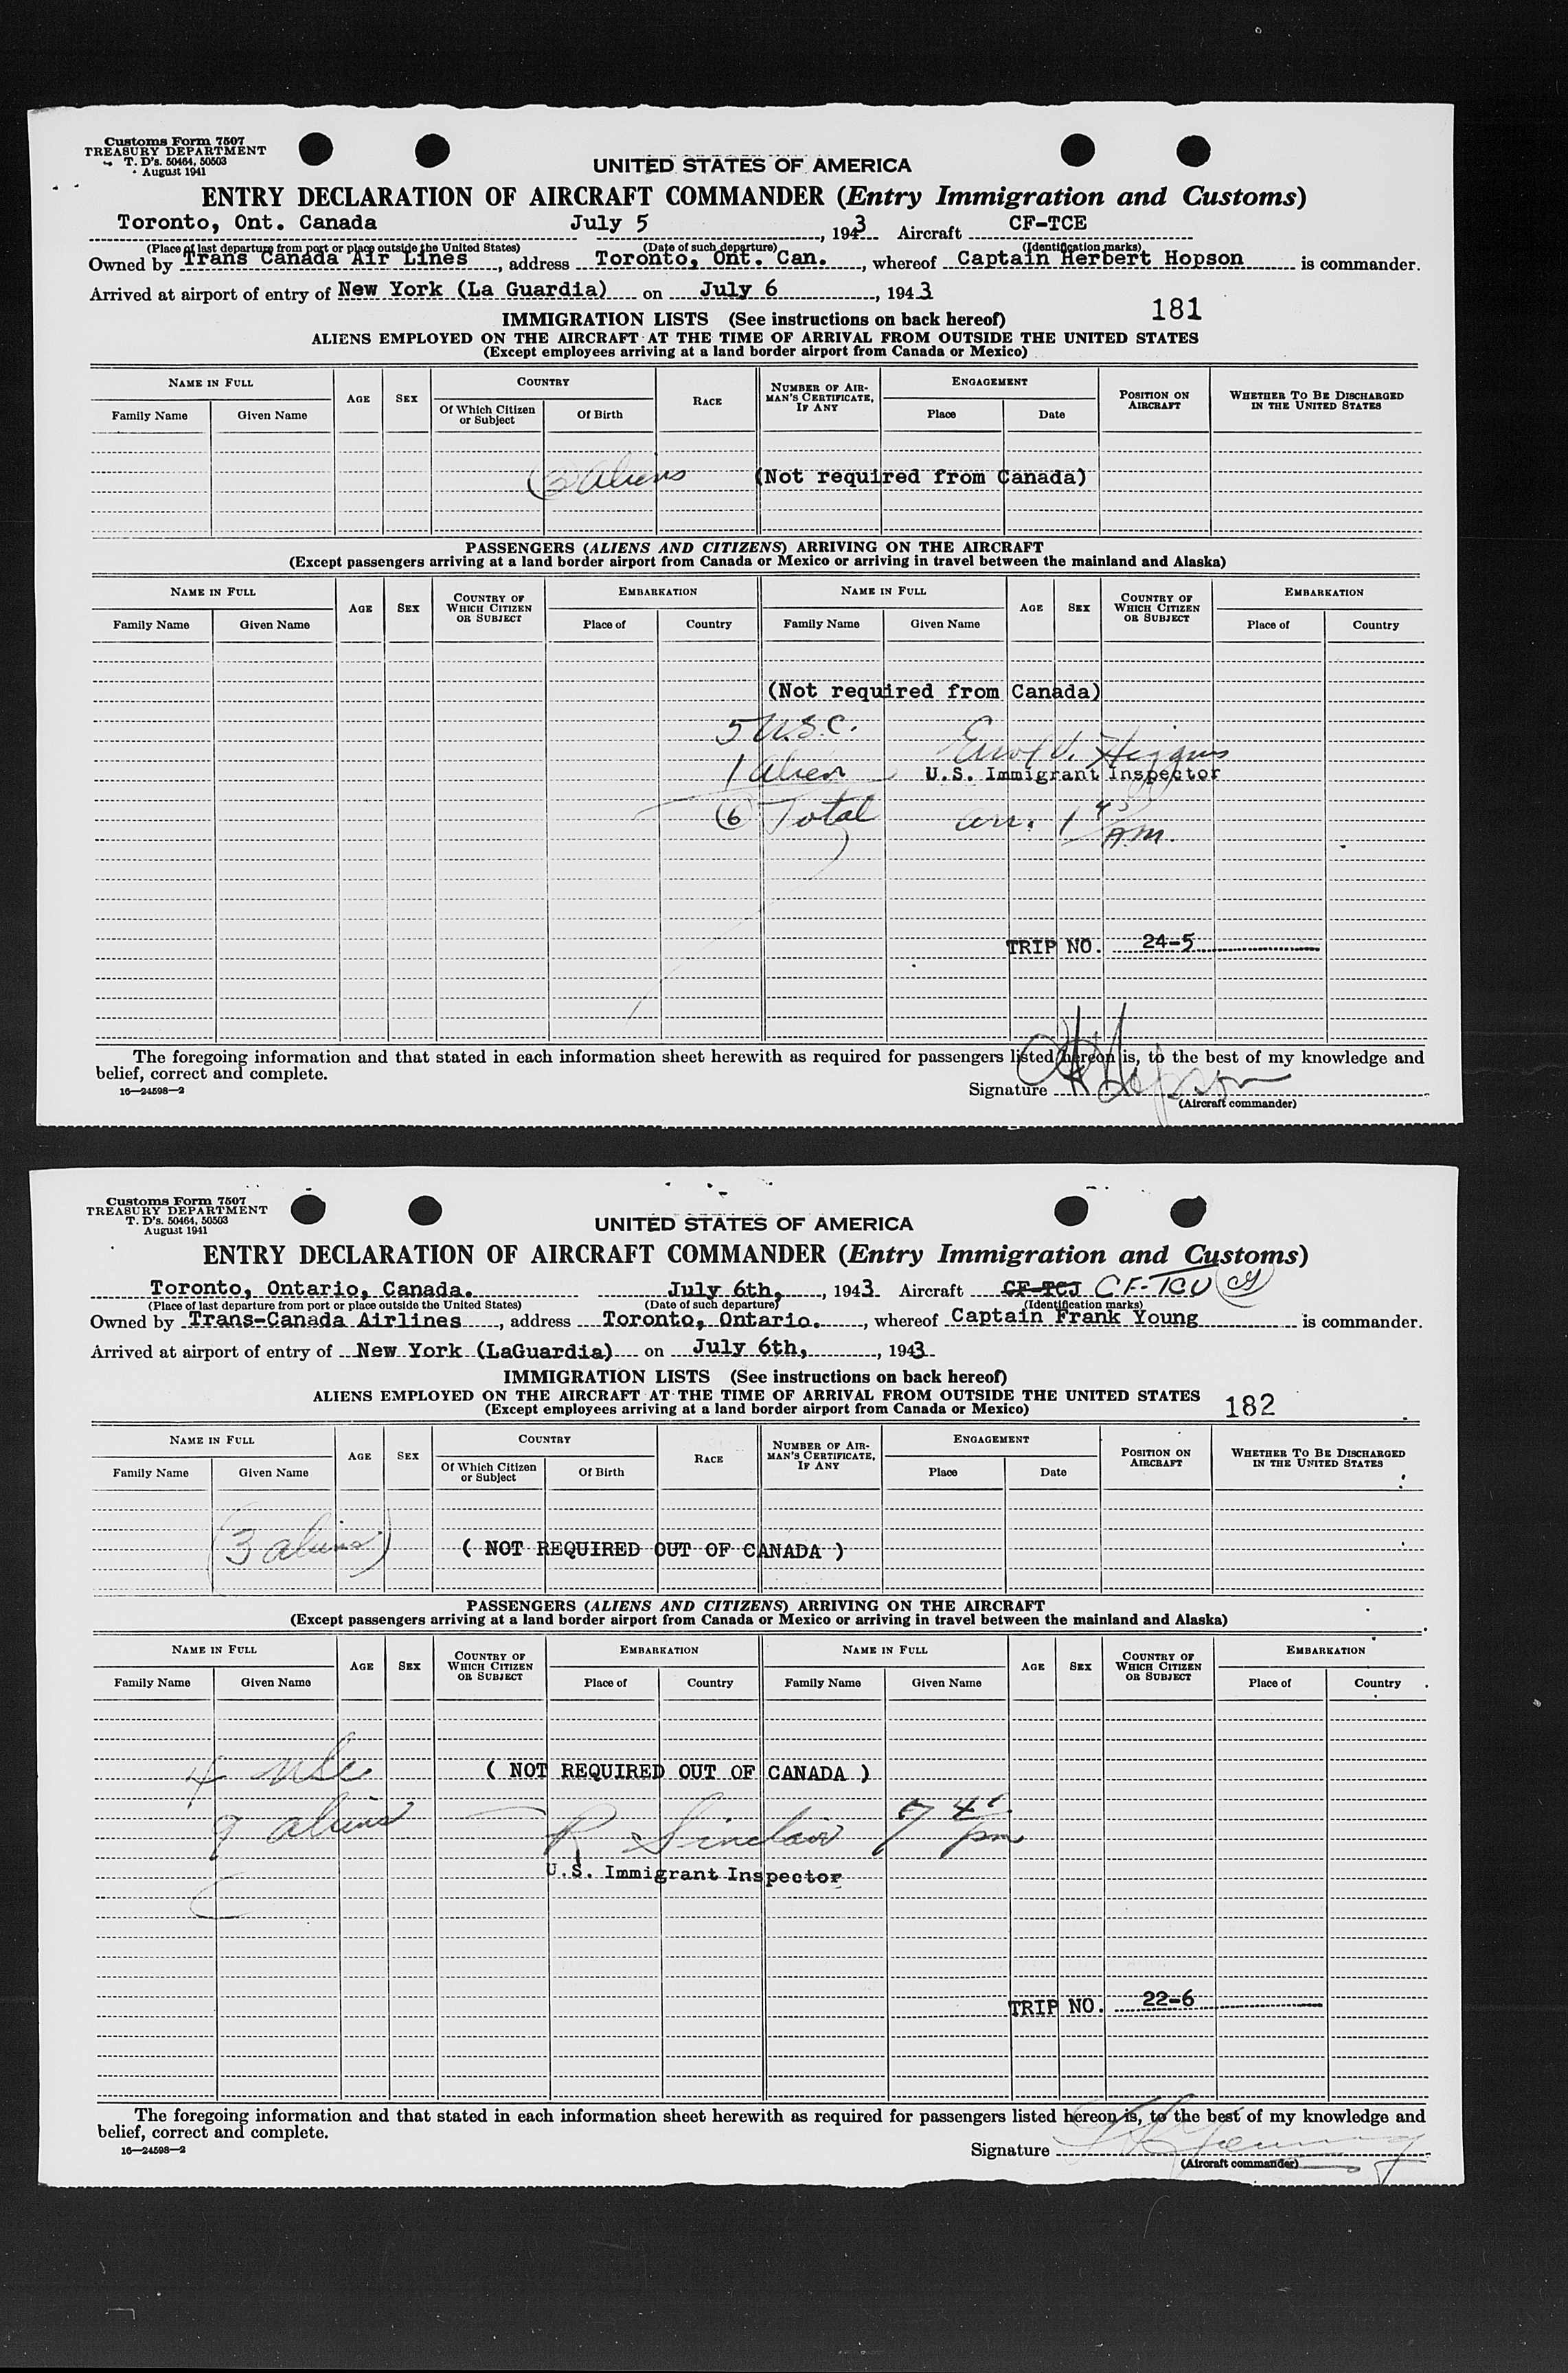 Customs Form 7507
TREASURY DEPARTMENT
T. D's. 50464, 50503
August 1941
UNITED STATES OF AMERICA
ENTRY DECLARATION OF AIRCRAFT COMMANDER (Entry Immigration and Customs)
Toronto, Ont. Canada July 5, 1943 Aircraft CF-TCE
(Place of last departure from port or place outside the United States) (Date of such departure) (Identification marks)
Owned by Trans Canada Air Lines, address Toronto, Ont. Can., whereof Captain Herbert Hopson is commander.
Arrived at airport of entry of New York (La Guardia) on July 6, 1943
181
IMMIGRATION LISTS (See instructions on back hereof)
ALIENS EMPLOYED ON THE AIRCRAFT AT THE TIME OF ARRIVAL FROM OUTSIDE THE UNITED STATES
(Except employees arriving at a land border airport from Canada or Mexico)
NAME IN FULL AGE SEX COUNTRY RACE NUMBER OF AIRMAN'S CERTIFICATE, IF ANY ENGAGEMENT POSITION ON AIRCRAFT WHETHER TO BE DISCHARGED IN THE UNITED STATES
Family Name Given Name Of Which Citizen or Subject Of Birth Place Date
Aliens (Not required from Canada)
PASSENGERS (ALIENS AND CITIZENS) ARRIVING ON THE AIRCRAFT
(Except passengers arriving at a land border airport from Canada or Mexico or arriving in travel between the mainland and Alaska)
NAME IN FULL AGE SEX COUNTRY OF WHICH CITIZEN OR SUBJECT EMBARKATION NAME IN FULL AGE SEX COUNTRY OF WHICH CITIZEN OR SUBJECT EMBARKATION
Family Name Given Name Place of Country Family Name Given Name Place of Country
(Not required from Canada)
5 U.S.C. Errol V. Higgins
1 Alien U.S. Immigrant Inspector
6 Total arr. 1 45 A.M.
TRIP NO. 24-5
The foregoing information and that stated in each information sheet herewith as required for passengers listed hereon is, to the best of my knowledge and
belief, correct and complete.
16—24598—2
Signature H Hopson
(Aircraft commander)
Customs Form 7507
TREASURY DEPARTMENT
T. D's. 50464, 50503
August 1941
UNITED STATES OF AMERICA
ENTRY DECLARATION OF AIRCRAFT COMMANDER (Entry Immigration and Customs)
Toronto, Ontario, Canada. July 6th, 1943 Aircraft CF-TCJ CF-TCU
(Place of last departure from port or place outside the United States) (Date of such departure) (Identification marks)
Owned by Trans-Canada Airlines, address Toronto, Ontario., whereof Captain Frank Young is commander.
Arrived at airport of entry of New York (LaGuardia) on July 6th, 1943
IMMIGRATION LISTS (See instructions on back hereof)
ALIENS EMPLOYED ON THE AIRCRAFT AT THE TIME OF ARRIVAL FROM OUTSIDE THE UNITED STATES
(Except employees arriving at a land border airport from Canada or Mexico)
182
NAME IN FULL AGE SEX COUNTRY RACE NUMBER OF AIRMAN'S CERTIFICATE, IF ANY ENGAGEMENT POSITION ON AIRCRAFT WHETHER TO BE DISCHARGED IN THE UNITED STATES
Family Name Given Name Of Which Citizen or Subject Of Birth Place Date
(3 aliens) ( NOT REQUIRED OUT OF CANADA )
PASSENGERS (ALIENS AND CITIZENS) ARRIVING ON THE AIRCRAFT
(Except passengers arriving at a land border airport from Canada or Mexico or arriving in travel between the mainland and Alaska)
NAME IN FULL AGE SEX COUNTRY OF WHICH CITIZEN OR SUBJECT EMBARKATION NAME IN FULL AGE SEX COUNTRY OF WHICH CITIZEN OR SUBJECT EMBARKATION
Family Name Given Name Place of Country Family Name Given Name Place of Country
4 usc ( NOT REQUIRED OUT OF CANADA )
9 aliens R Sinclair 7 pm
U.S. Immigrant Inspector
TRIP NO. 22-6
The foregoing information and that stated in each information sheet herewith as required for passengers listed hereon is, to the best of my knowledge and
belief, correct and complete.
16—24598—2
Signature Young
(Aircraft commander)